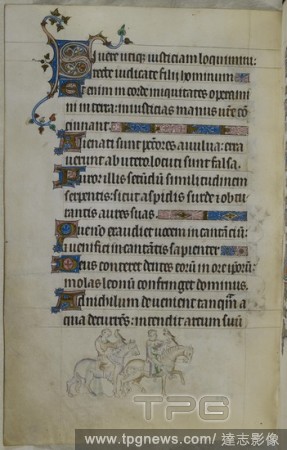 Si vere utiq; iusticiam loquimini:
recte iudicate filii hominum
Etenim in corde iniquitates operami
ni in terra: iniusticias manus vr̄e cō
cinnant
Alienati sunt pctōres a vulva: erra
verunt ab utero locuti sunt falsa.
Furor illis secundū similitudinem
serpentis: sicut aspidis surde ⁊ obtu
rantis aures suas.
Que nō exaudiet vocem incantanciū:
⁊ venefici incantātis sapienter
Deus conteret dentes eorū in ore ip̄orū:
molas leonū confringet dominus.
Ad nichilum devenient tanq̄m a
qua decurrēs: intendit arcum suū
TPG
www.tpgnews.com/達志影像